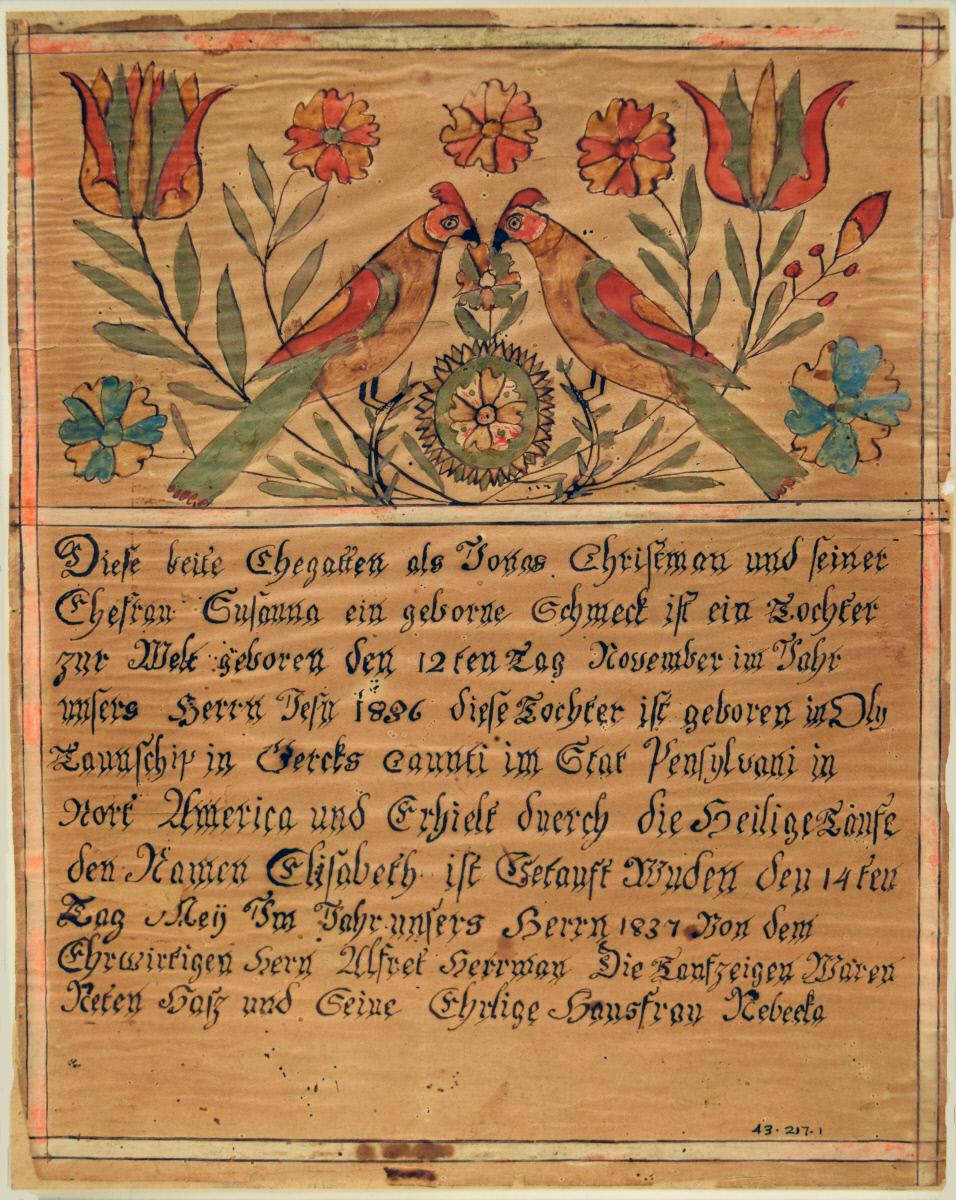 Diese beite Ehegatten als Jonas Christman und seiner
Ehefrau Susanna ein geborne Schmeck ist ein Tochter
zur Welt geboren den 12ten Tag November im Jahr
unsers Herrn Jesu 1836 diese Tochter ist geboren in Oly
Taunschip in Bercks Caunti im Stat Pensylvani in
Nort America und Erhielt duerch die Heilige Taufe
den Namen Elisabeth ist Getauft Wuden den 14ten
Tag Meÿ Im Jahr unsers Herrn 1837 Von dem
Ehrwirtigen Hern Alfret Herrman Die Taufzeigen Waren
und Seine Ehrlige Hausfrau Rebecka
43·217·1